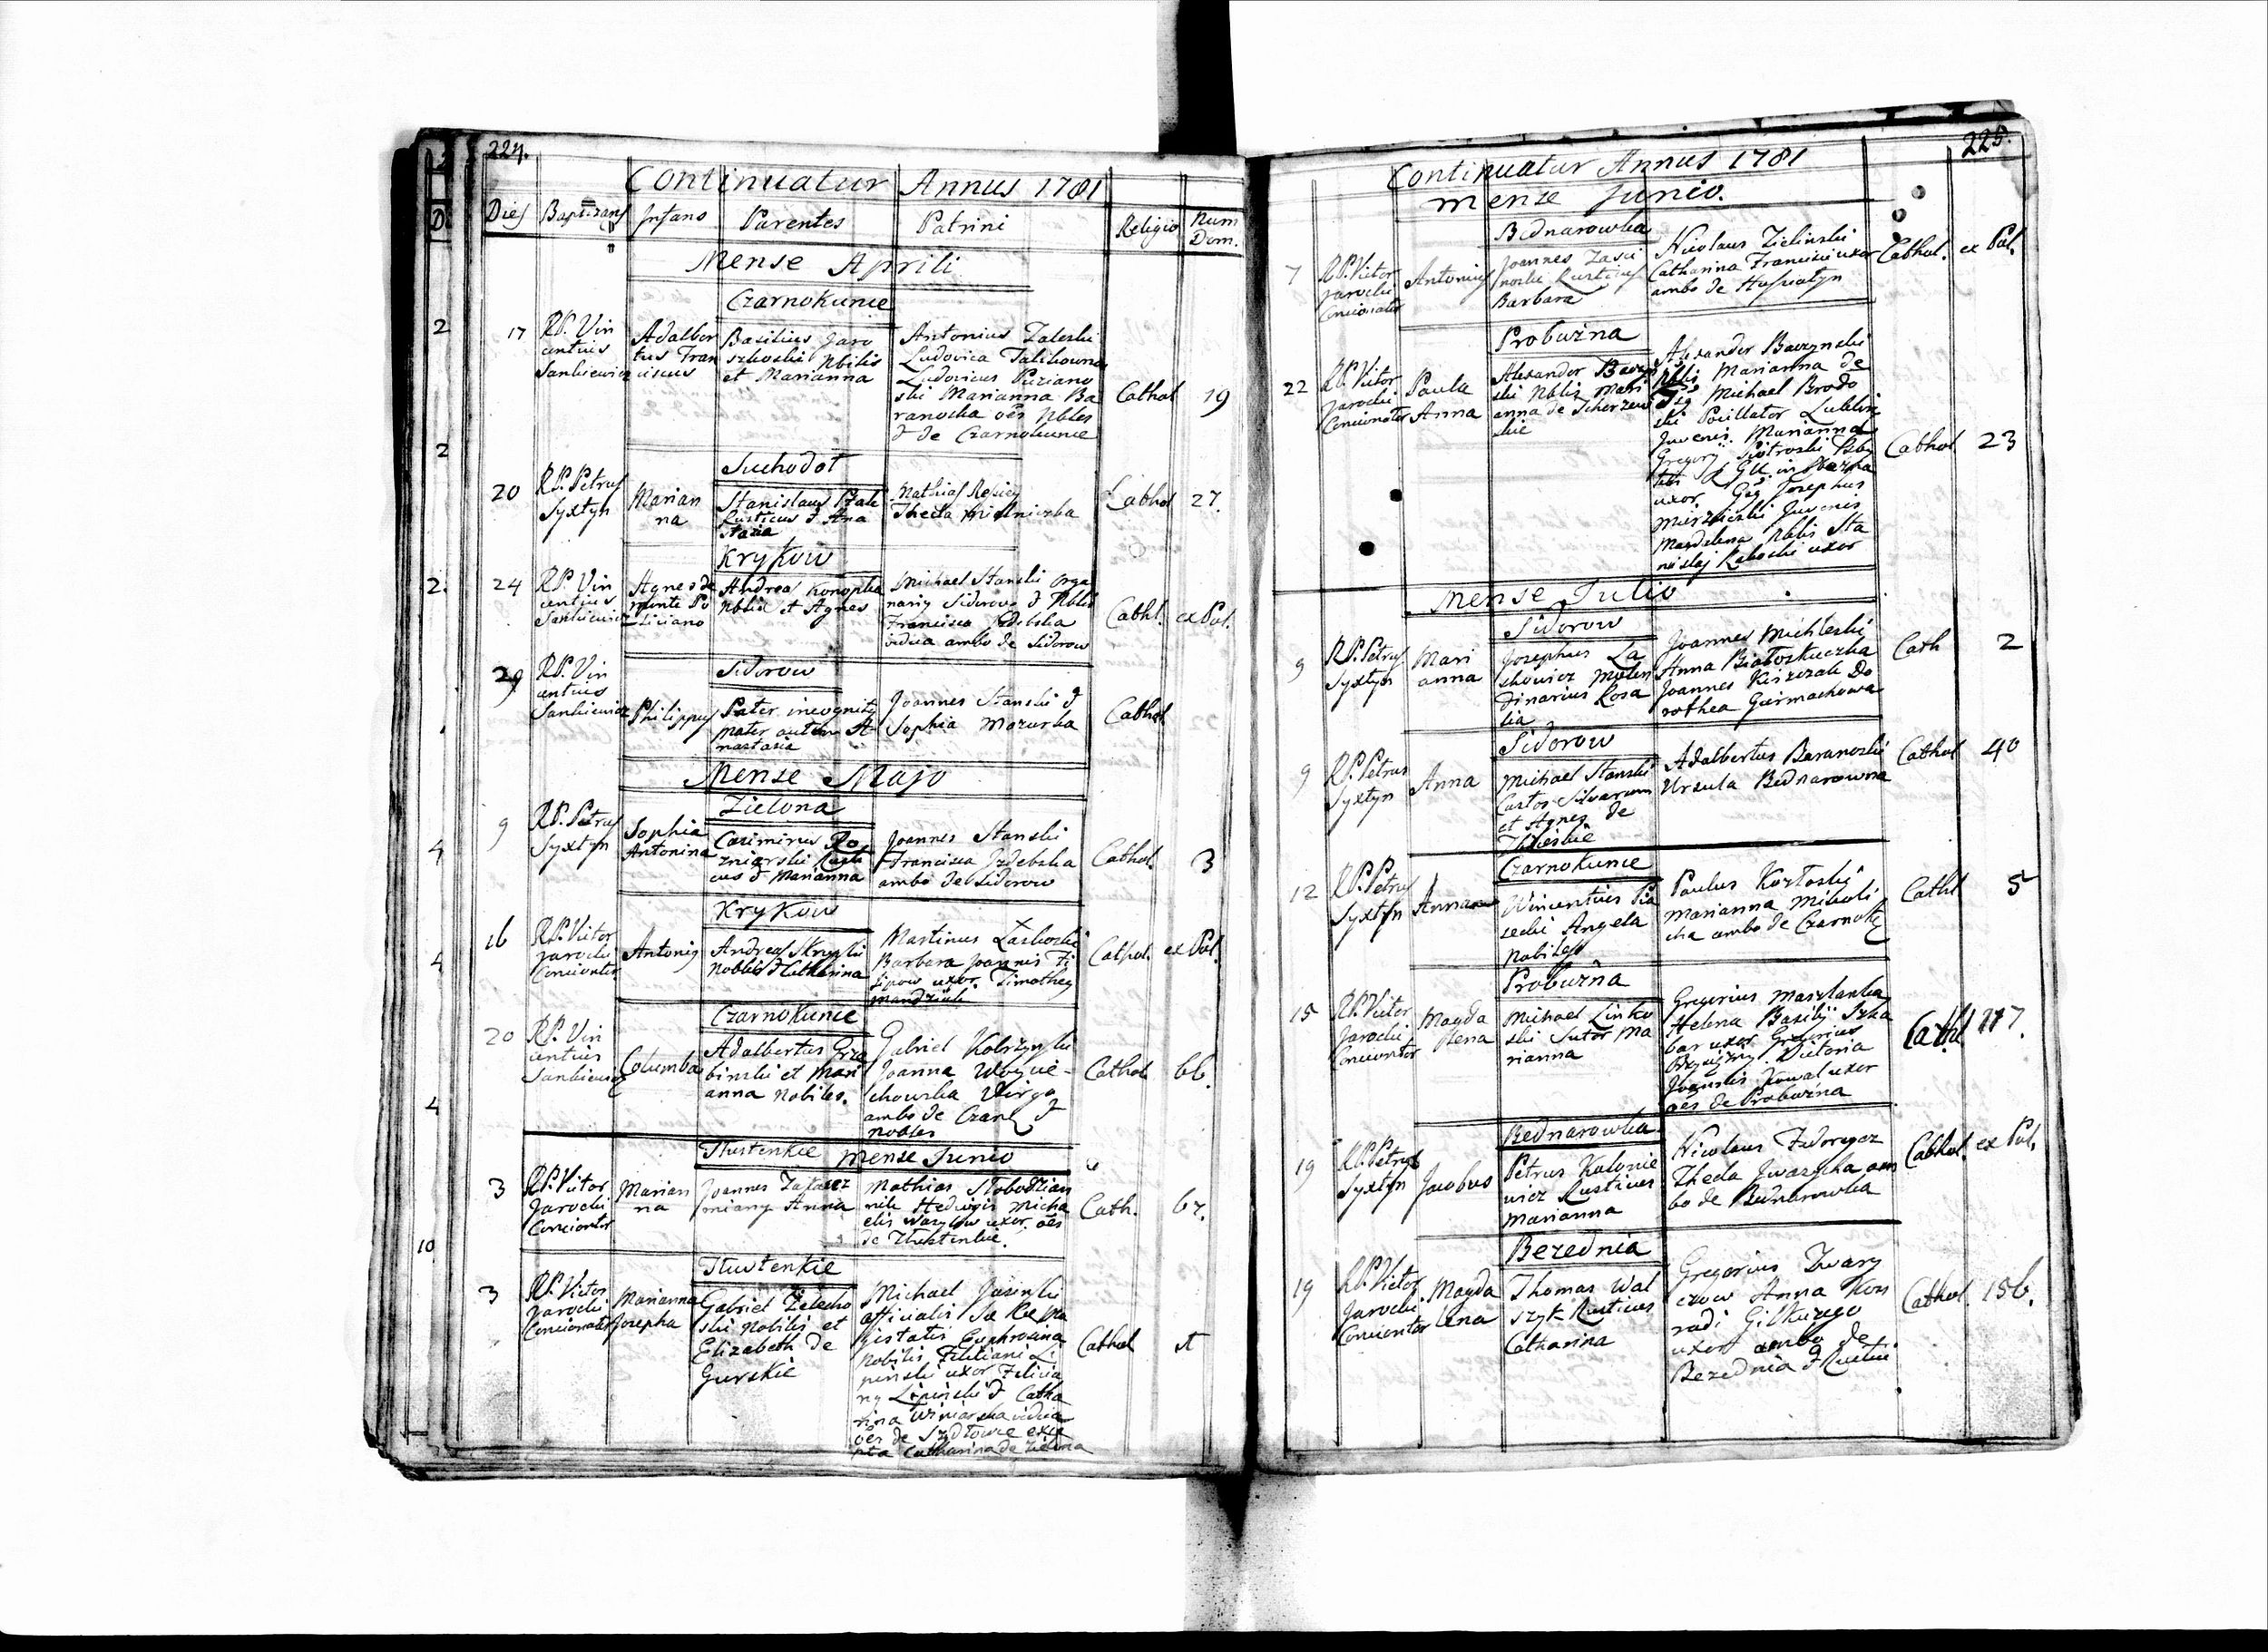 224.
Continuatur Annus 1781
Dies Baptizans Infans Parentes Patrini Religio Num Dom.
Mense Aprili
Czarnokunce
17 RP. Vin
centius
Sankiewicz
Adalber
tus Fran
ciscus
Basilius Jaro
szkoski Nbilis
et Marianna
Antonius Zaleski
Ludovica Talikowna
Ludovicus Puziano
ski Marianna Ba
ranocka oes Nbles
& de Czarnokunce
Cathol 19
Suchodoł
20 RP. Petrus
Syxtyn
Marian
na
Stanislaus
Rusticus & Ana
stasia
Mathias
Thecla Mielniczka
Cathol 27.
Krykow
24 RP. Vin
centius
Sankiewicz
Agnes de
monte Po
liciano
Andreas Konopka
Nbilis et Agnes
Michael Stanski orga
narig Sidorow & Nblis
Francisca Izdebska
vidua ambo de Sidorow
Cathl. ex Pal.
Sidorow
29 RP. Vin
centius
Sankiewicz
Philippus
Pater incognitg
mater autem A
nastasia
Joannes Stanski &
Sophia Mazurka
Cathol
Mense Majo
Zielona
9 RP. Petrus
Syxtyn
Sophia
Antonina
Casimirus Ro
zniarski Rusti
cus & Marianna
Joannes Stanski
Francisca Izdebska
ambo de Sidorow
Cathol. 3
Krykow
16 RP. Victor
Jarocki
Concionator
Antonig
Andreas Skrypski
Nobilis & Catharina
Martinus Laskoski
Barbara Joannis Fi
lipow uxor. Timotheg
Mandziuk
Cathol. ex Pal.
Czarnokunce
20 RP. Vin
centius
Sankiewicz
Columba
Adalbertus Grza
binski et Mari
anna Nobiles.
Gabriel Kobrzynski
Joanna Woycie-
chowska Virgo
ambo de Czarn &
nobles
Cathol 66.
Tłustenkie Mense Junio
3 RP. Victor
Jarocki
Concionator
Marian
na
Joannes
miany Anna
Mathias Słobodzian
nik Hedwigis Micha
elis Wasylow uxor, oes
de Tłustenkie.
Cath. 67.
Tłustenkie
3 RP. Victor
Jarocki
Concionator
Marianna
Josepha
Gabriel Zelecho
ski Nobilis et
Elizabeth de
Gurskie
Michael Jasinski
officialis Sae Rae Ma
gistatis Euphrosina
Nobilis Feliciani Li
pinski uxor Felicia
ng Lipinski & Catha
rina Winiarska vidua
oes de Szydłowce exce
pta Catharina de Zielona
Cathol
225.
Continuatur Annus 1781
Mense Junio.
Bednarowka
7 RP. Victor
Jarocki
Concionator
Antonius
Joannes Zasci
noski Rusticus
Barbara
Nicolaus Zielinski
Catharina Francisci uxor
ambo de Husiatyn
Cathol. ex Pal.
Probużna
22 RP. Victor
Jarocki
Concionator
Paula
Anna
Alexander Baczyn
ski Nblis Mari
anna de Scherzew
skie
Alexander Baczynski
Nblis Marianna de
Michael Brodo
ski Pocillator Lublin
Juvenis. Marianna
Gregorij Piotroski
uxor Josephus
Mierzwiski Juvenis
Magdalena Nblis Sta
nislaj Raboski uxor
Cathol 23
Mense Julio
Sidorow
9 RP. Petrus
Syxtyn
Mari
anna
Josephus La
skowicz Molen
dinarius Rosa
lia
Joannes Michleski
Anna Białoskurzka
Joannes Krszczak Do
rothea Germachowa
Cath 2
Sidorow
9 RP. Petrus
Syxtyn
Anna
Michael Stanski
Custos Silvarum
et Agnes de
Adalbertus Baranoski
Ursula Bednarowna
Cathol 40
Czarnokunce
12 RP. Petrus
Syxtyn
Anna
Wincentius Pia
secki Angela
Nobiles
Paulus Kozłoski
Marianna Mikoli
cka ambo de Czarnok
Cathl 5
Probużna
15 RP. Victor
Jarocki
Concionator
Magda
lena
Michael Linko
ski Sutor Ma
rianna
Gregorius Maszlanka
Helena Basilij Szka
bar uxor Gregorius
Victoria
Joannis Kowal uxor
oes de Probużna
Cathl 117.
Bednarowka
19 RP. Petrus
Syxtyn
Jacobus
Petrus Kalonie
wicz Rusticus
Marianna
Nicolaus Fedorycz
Thecla Iwasycha am
bo de Bednarowka
Cathol. ex Pal.
Bezednia
19 RP. Victor
Jarocki
Concionator
Magda
lena
Thomas Wal
szyk Rusticus
Catharina
Gregorius Zwary
czow Anna Kon
radi Gilkuzego
uxor ambo de
Bezednia & Rustici
Cathol. 156.